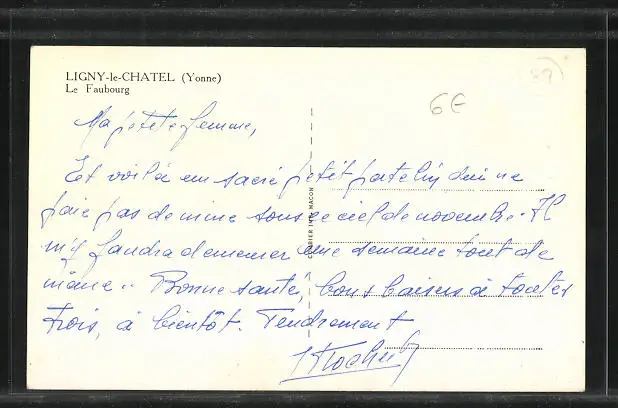 LIGNY-le-CHATEL (Yonne)
Le Faubourg
89
6€
Ma petite femme,
Et voilà un sacré petit patelin qui ne
paie pas de mine sous ce ciel de novembre. Il
m'y faudra demeurer une semaine tout de
même.. Bonne santé, bons baisers à toutes
trois, à bientôt. Tendrement
COMBIER IMP. MACON